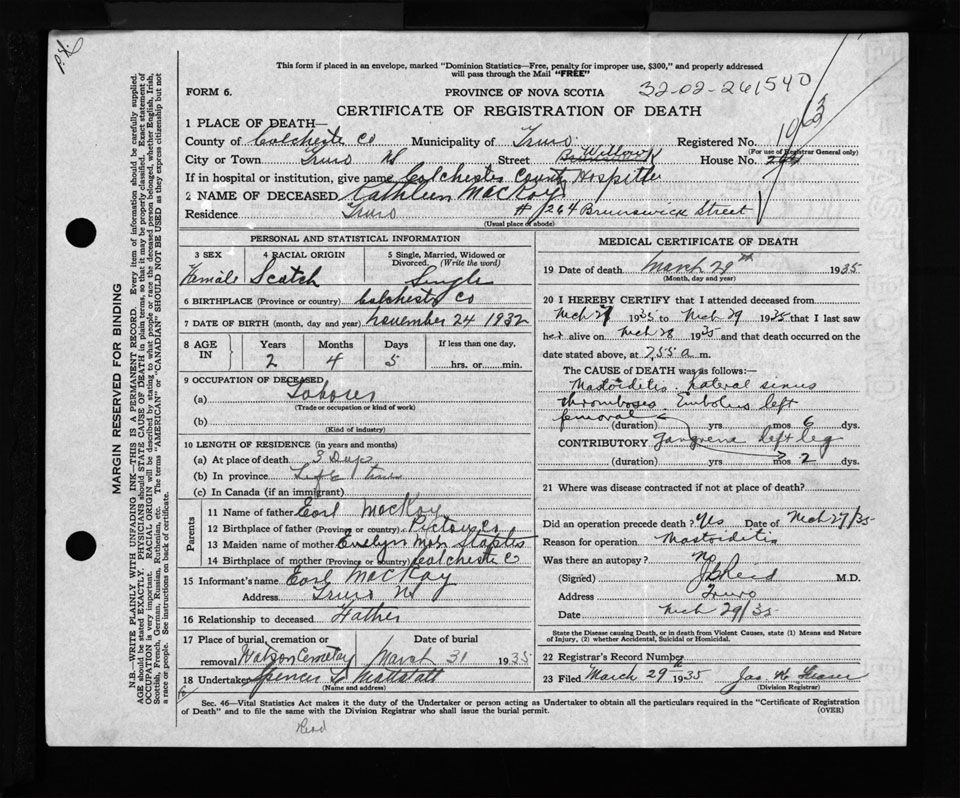 This form if placed in an envelope, marked "Dominion Statistics—Free, penalty for improper use, $300," and properly addressed
will pass through the Mail "FREE"
FORM 6.
PROVINCE OF NOVA SCOTIA
32-02-261540
CERTIFICATE OF REGISTRATION OF DEATH
1 PLACE OF DEATH—
County of Colchester Co Municipality of Truro Registered No. 1963
(For use of Registrar General only)
City or Town Truro NS Street Willow House No.
If in hospital or institution, give name Colchester County Hospital
2 NAME OF DECEASED Kathleen MacKay
Residence Truro # 264 Brunswick Street
(Usual place of abode)
PERSONAL AND STATISTICAL INFORMATION
3 SEX 4 RACIAL ORIGIN 5 Single, Married, Widowed or Divorced. (Write the word)
Female Scotch Single
6 BIRTHPLACE (Province or country) Colchester Co
7 DATE OF BIRTH (month, day and year) November 24 1932
8 AGE IN Years Months Days If less than one day,
2 4 5 hrs. or min.
9 OCCUPATION OF DECEASED
(a)
(Trade or occupation or kind of work)
(b)
(Kind of industry)
10 LENGTH OF RESIDENCE (in years and months)
(a) At place of death 3 Days
(b) In province Life time
(c) In Canada (if an immigrant)
Parents
11 Name of father Earl MacKay
12 Birthplace of father (Province or country) Pictou Co
13 Maiden name of mother Evelyn Staples
14 Birthplace of mother (Province or country) Colchester C
15 Informant's name Earl MacKay
Address Truro NS
16 Relationship to deceased Father
17 Place of burial, cremation or removal Watson Cemetay Date of burial March 31 1935
18 Undertaker Spencer L Mattatall
(Name and address)
MEDICAL CERTIFICATE OF DEATH
19 Date of death March 29th 1935
(Month, day and year)
20 I HEREBY CERTIFY that I attended deceased from
Mch 27 1935 to Mch 29 1935 that I last saw
her alive on Mch 28 1935 and that death occurred on the
date stated above, at 7 55 a m.
The CAUSE of DEATH was as follows:—
Mastoiditis Lateral sinus
thromboses Embolus left
femoral
(duration) yrs mos 6 dys.
CONTRIBUTORY Gangrene left leg
(duration) yrs mos 2 dys.
21 Where was disease contracted if not at place of death?
Did an operation precede death? Yes Date of Mch 27/35
Reason for operation Mastoiditis
Was there an autopsy? No
(Signed) Reid M.D.
Address Truro
Date Mch 29/35
State the Disease causing Death, or in death from Violent Causes, state (1) Means and Nature
of Injury, (2) whether Accidental, Suicidal or Homicidal.
22 Registrar's Record Number
23 Filed March 29th 1935 Jas H
(Division Registrar)
Sec. 46—Vital Statistics Act makes it the duty of the Undertaker or person acting as Undertaker to obtain all the particulars required in the "Certificate of Registration
of Death" and to file the same with the Division Registrar who shall issue the burial permit. (OVER)
MARGIN RESERVED FOR BINDING
N.B.—WRITE PLAINLY WITH UNFADING INK—THIS IS A PERMANENT RECORD. Every item of information should be carefully supplied.
AGE should be stated EXACTLY. PHYSICIANS should STATE CAUSE OF DEATH in plain terms, so that it may be properly classified. Exact statement of
OCCUPATION is very important. RACIAL ORIGIN will be described by stating to what people or race the deceased person belonged, whether English, Irish,
Scottish, French, German, Russian, Ruthenian, etc. The terms "AMERICAN" or "CANADIAN" SHOULD NOT BE USED as they express citizenship but not
a race or people. See instructions on back of certificate.